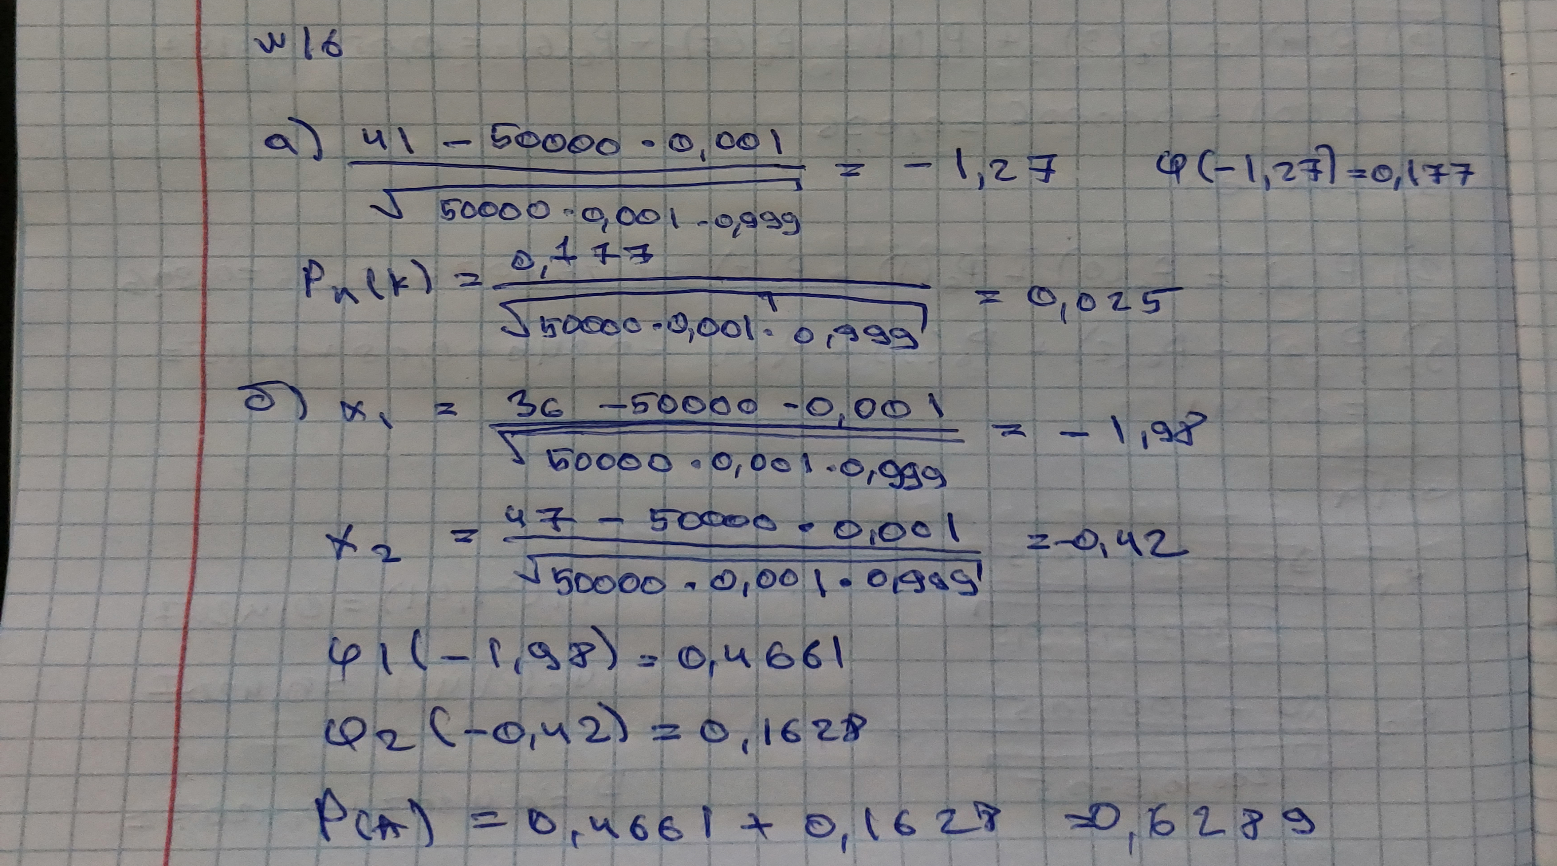 №16
а) (41 - 50000 · 0,001) / √(50000 · 0,001 · 0,999) = -1,27 φ(-1,27) = 0,177
Pn(k) = 0,177 / √(50000 · 0,001 · 0,999) = 0,025
б) x1 = (36 - 50000 · 0,001) / √(50000 · 0,001 · 0,999) = -1,98
x2 = (47 - 50000 · 0,001) / √(50000 · 0,001 · 0,999) = -0,42
φ1(-1,98) = 0,4661
φ2(-0,42) = 0,1628
P(A) = 0,4661 + 0,1628 = 0,6289